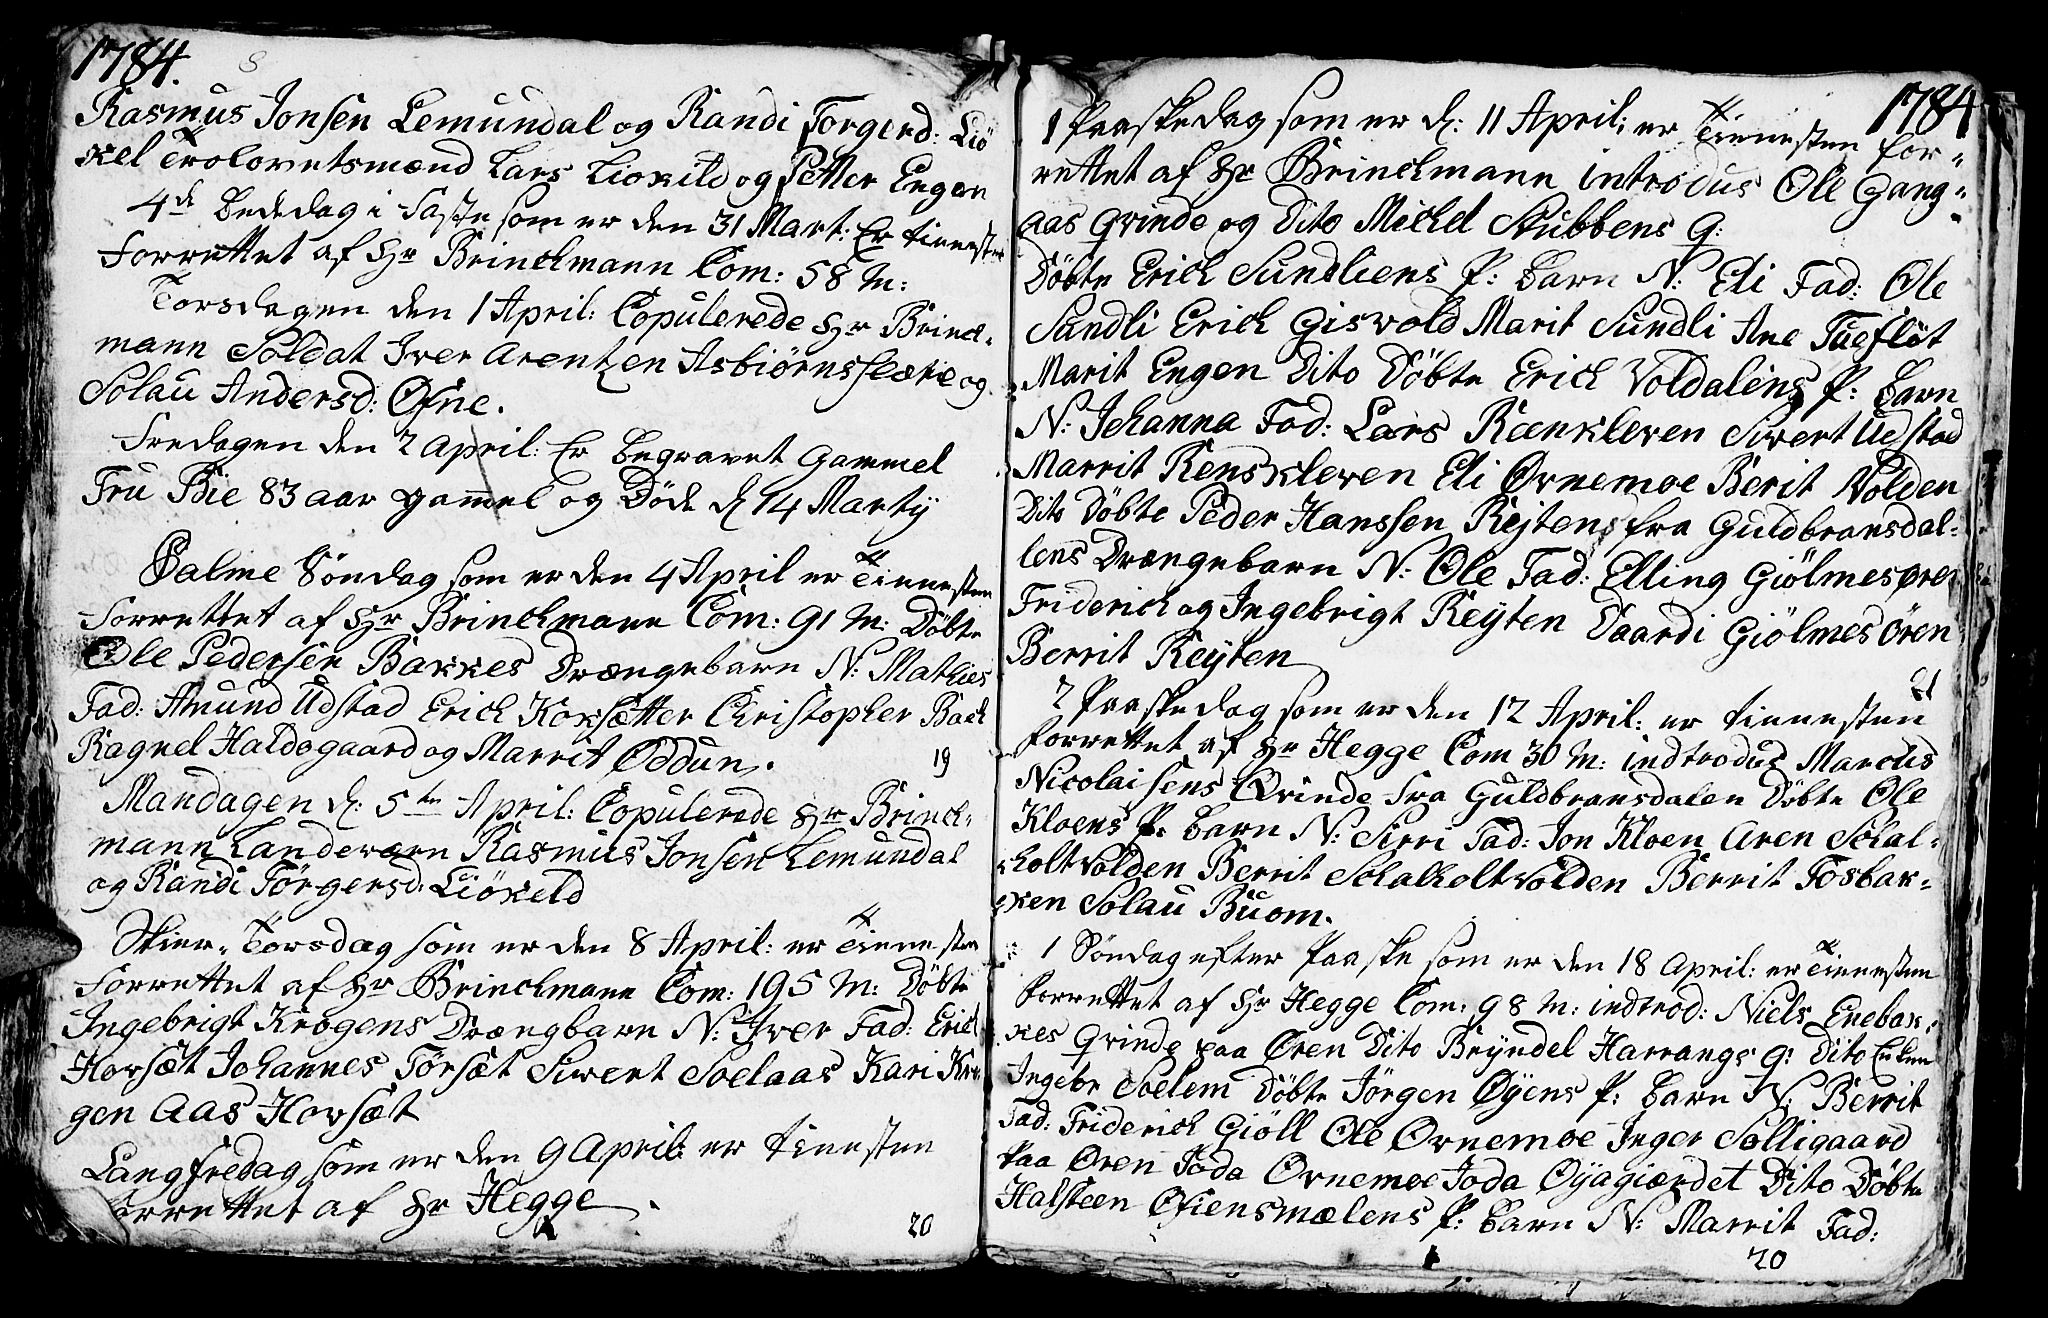 1784.
Rasmus Jonsen Lemundal og Randi Torgerd: Liö
kel Trolovetsmænd Lars Liokild og Petter Engen
4de Bededag i Faste som er den 31 Mart: Er tienesten
Forrettet af Hr Brinchmann Com: 58 M:
Torsdagen den 1 April: Copulerede Hr Brinch-
mann Soldat Iver Arentzen Asbiørnsslætte og
Solau Andersd: Øfne.
Fredagen den 2 April: Er begravet Gammel
Fru Bie 83 aar gammel og Döde d 14 Marty
Palme Söndag som er den 4 April er Tienesten
Forrettet af Hr Brinchmann Com: 91 M: Döbte
Ole Pedersen Bakkes Drængebarn N: Mathies
Fad: Amund Udstad Erich Koksætter Christopher Bach
Ragnel Haldogaard og Marrit Oddun.
19
Mandagen d: 5te April: Copulerede Hr Brinch-
mann Landeværn Rasmus Jonsen Lemundal
og Randi Törgersd: Liökeld
Skier-Torsdag som er den 8 April: er Tienesten
Forrettet af Hr Brinchmann Com: 195 M: Döbte
Ingebrigt Krogens Drængbarn N: Iver Fad: Erich
Hovsæt Johannes Törsæt Siwert Soelaas Kari Kro
gen Aas Hovsæt
Langfredag som er den 9 April: er tienesten
forrettet af Hr Hegge.
20
1784
1 Paaskedag som er d: 11 April: er Tienesten for-
rettet af Hr Brinchmann introdus Ole Gang-
aas Qvinde og Dito Michel Stubbens Q:
Döbte Erich Sundliens P: barn N: Eli Fad: Ole
Sundli Erich Giswold Marit Sundli Ane Tueflöt
Marit Engen Dito Döbte Erich Voldaléns P: barn
N: Johanna Fad: Lars Rænkleven Siwert Udstad
Marrit Renskleven Eli Ørnemoe Berit Volden
Dito Döbte Peder Hanssen Rejtens fra Guldbransdal-
lens Drængebarn N: Ole Fad: Elling Giölmesøren
Friderich og Ingebrigt Reyten Daardi Giölmesören
Berrit Reyten
21
2 Paaskedag som er den 12 April: er tienesten
forrettet af Hr Hegge Com 30 M: indtrodus Marcus
Nicolaisens Qvinde fra Guldbransdalen Döbte Ole
Kloens P: barn N: Sirri Fad: Jon Kloen Aren Schal-
holtvolden Berrit Schalholtvolden Berrit Fosbak-
ken Solau Buom.
1 Söndag efter Paaske som er den 18 April: er Tienesten
forrettet af Hr Hegge Com: 98 M: indtrod: Niels Enebak-
kes Qvinde paa Øren Dito Bryndel Harrangs Q: Dito
Ingebr Soelem Döbte Jörgen Øyens P: barn N: Berrit
Fad: Friderich Giöll Ole Ørnemoe Inger Solligaard
Paa Øren Joda Ørnemoe Joda Øyagiærdet Dito Döbte
Halsteen Øfiensmælens P: barn N: Marrit Fad:
20